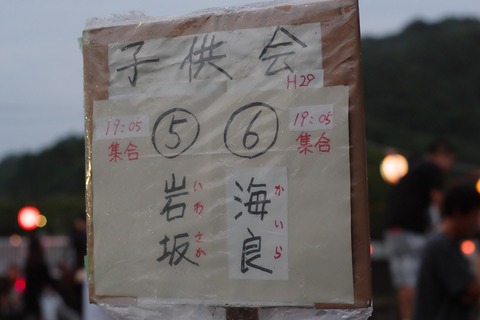 子供会
H29
19:05
集合
⑤
⑥
19:05
集合
岩坂
いわさか
海良
かいら